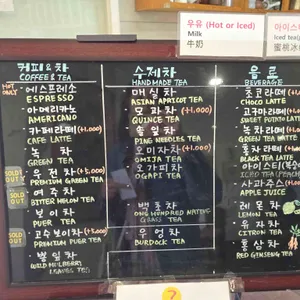 우유 (Hot or Iced)
Milk
牛奶
아이스
Iced tea(p
커피&차
COFFEE & TEA
HOT ONLY
에스프레소
ESPRESSO
아메리카노
AMERICANO
카페라떼(+1,000)
CAFE LATTE
녹차
GREEN TEA
SOLD OUT
우전차(+1,000)
PREMIUM GREEN TEA
쑥차
BITTER MELON TEA
보이차
PUER TEA
SOLD OUT
고수보이차(+1,000)
PREMIUM PUER TEA
뽕잎차
WILD MULBERRY LEAVES TEA
수제차
HANDMADE TEA
매실차
ASIAN APRICOT TEA
모과차(+1,000)
QUINCE TEA
솔잎차
PINE NEEDLES TEA
오미자차(+1,000)
OMIJA TEA
오가피차
OGAPI TEA
백초차
ONE HUNDRED NATIVE GRASS TEA
우엉차
BURDOCK TEA
음료
BEVERAGE
초코라떼
CHOCO LATTE
고구마라떼
SWEET POTATO LATTE
녹차라떼
GREEN TEA LATTE
홍차라떼
BLACK TEA LATTE
아이스티
ICED TEA
사과주스
APPLE JUICE
레몬차
LEMON TEA
유자차
CITRON TEA
홍삼차
RED GINSENG TEA